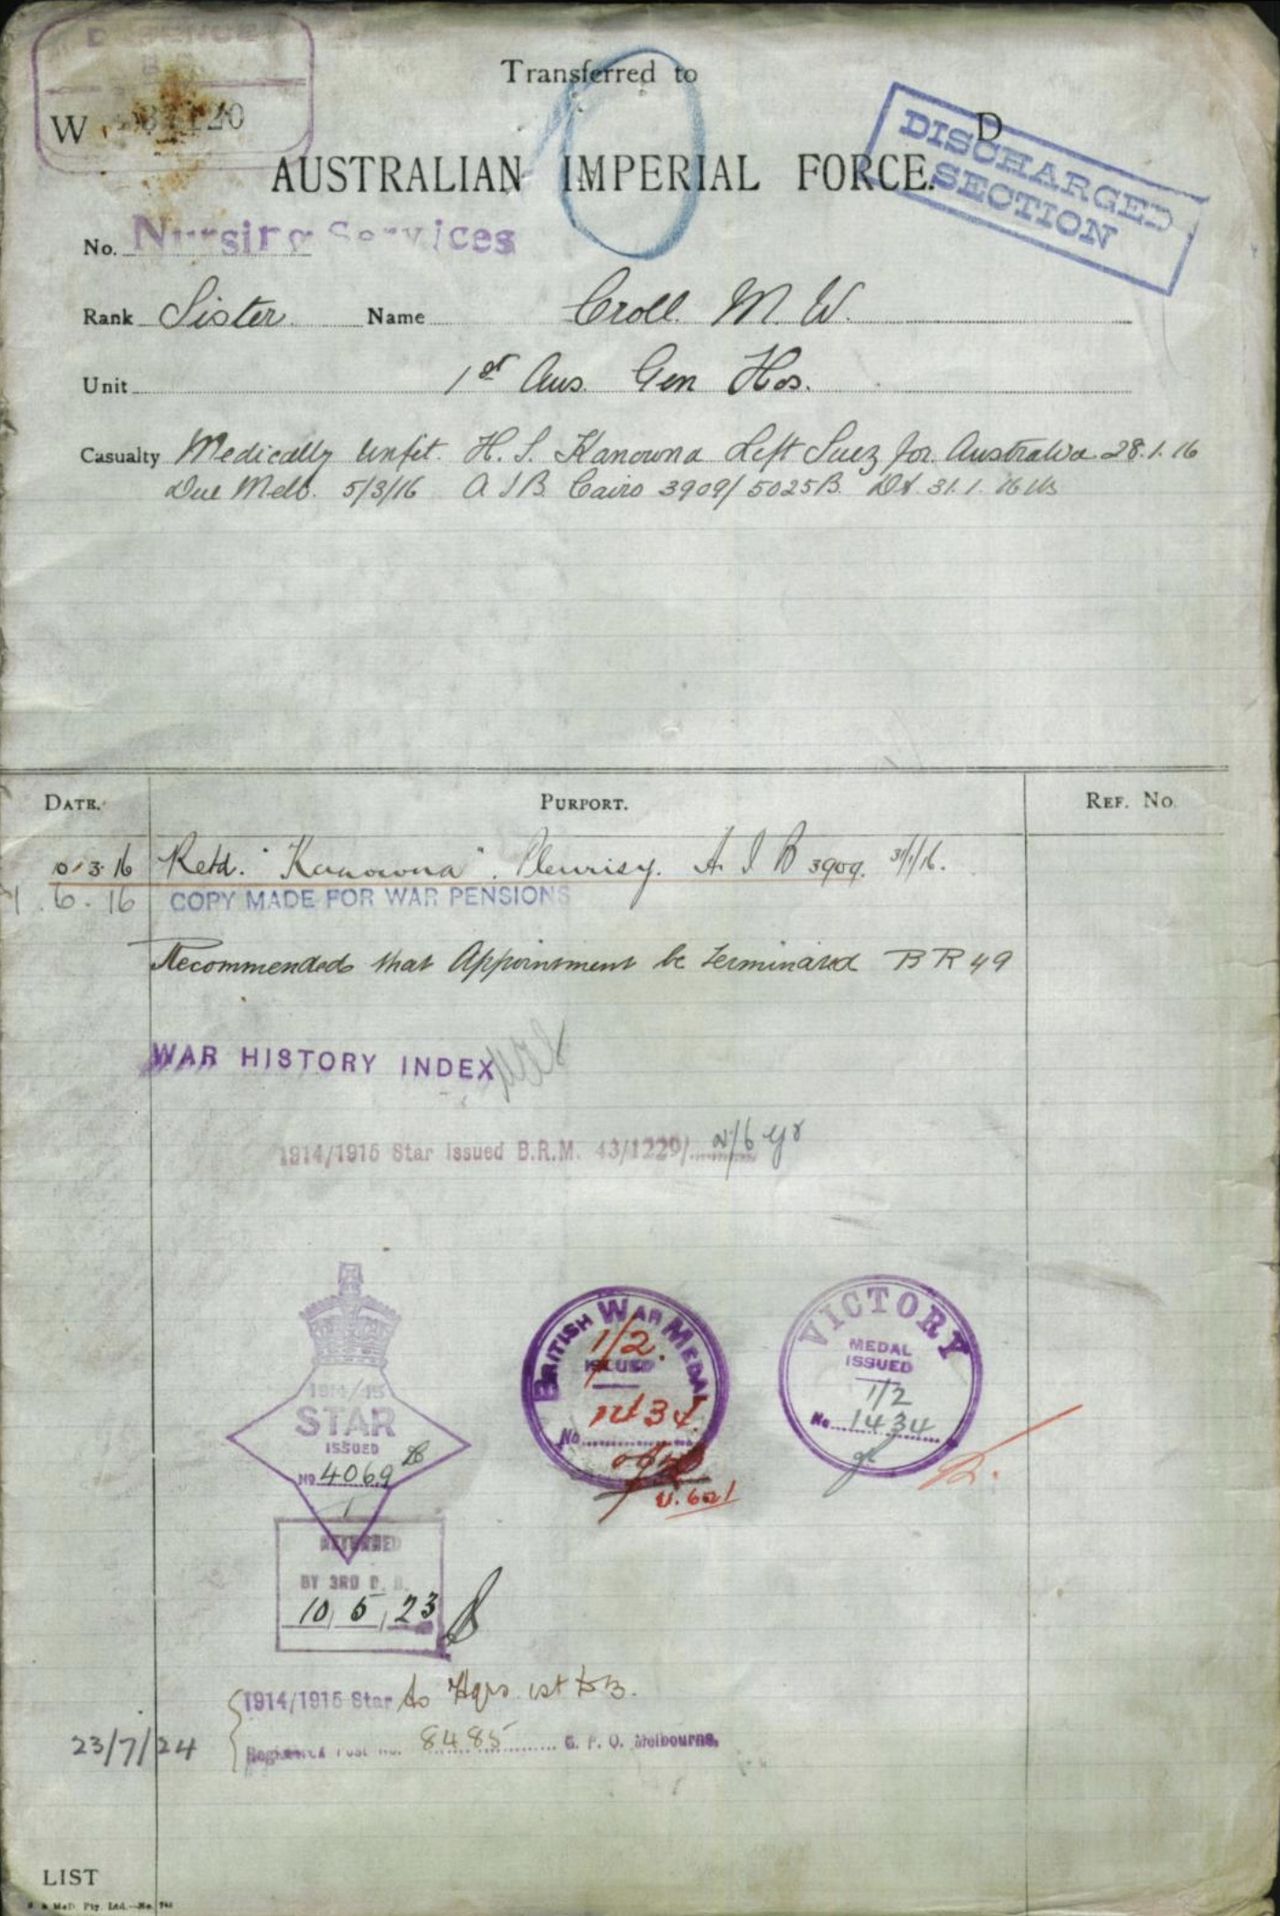 DEFENCE
Transferred to
W
D
DISCHARGED
SECTION
AUSTRALIAN IMPERIAL FORCE.
No. Nursing Services
Rank Sister. Name Croll. M. W.
Unit 1st Aus. Gen Hos.
Casualty Medically Unfit. H. S. Kanowna Left Suez for Australia 28.1.16
Due Melb. 5/3/16 A I B Cairo 3909/5025B. Dt. 31.1.16
DATE. PURPORT. REF. No.
3.16 Retd. "Kanowna". Pleurisy. A. I B 3909. 31/1/16.
6.16 COPY MADE FOR WAR PENSIONS
Recommended that Appointment be terminated B R 49
WAR HISTORY INDEX
1914/1915 Star Issued B.R.M. 43/1229/
1914/15
STAR
ISSUED
No 4069
BRITISH WAR MEDAL
1/2.
ISSUED
1434
No
VICTORY
MEDAL
ISSUED
1/2
No. 1434
RETURNED
BY 3RD
10 5 23
1914/1915 Star to Hqrs. 1st
23/7/24 Registered Post No. 8485 G. P. O. Melbourne.
LIST
Pty. Ltd.